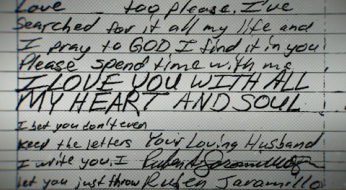 Love too please. I've
Searched for it all my life and
I pray to GOD I find it in you
Please spend time with me
I LOVE YOU WITH ALL
MY HEART AND SOUL.
I bet you don't even
keep the letters Your Loving Husband
I write you. I
bet you just throw Ruben Jaramillo